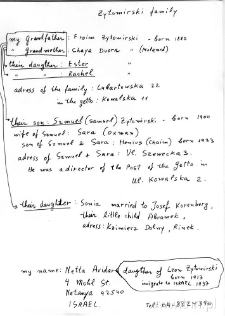 Zytomirski family
my grandfather : Froim Zytomirski - born 1882
" grandmother : Chaya Dvora " (Melamed)
their daughter : Ester
" " Rachel
adress of the family : Lubartowska 22
in the getto : Kowalska 11
their son : Szmuel (Samuel) Zytomirski - born 1900
wife of Szmuel : Sara (Oxman)
son of Szmuel & Sara : Henius (Chaim) born 1933
adress of Szmuel + Sara : Ul. Szewska 3.
He was a director of the Post of the getto in
Ul. Kowalska 2.
their daughter : Sonia married to Josef Korenberg,
their little child Abramek,
adress : Kazimierz Dolny, Rinek.
my name : Netta Avidar daughter of Leon Zytomirski
born 1913
imigrate to ISRAEL 1937
4 Mohl St.
Netanya 42540
ISRAEL